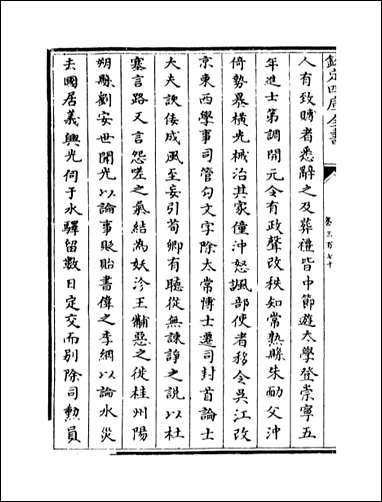 欽定四庫全書
卷三百七十
人有致賻者悉辭之及葬禮皆中節遊太學登崇寧五
年進士第調開元令有政聲改秩知常熟縣朱勔父沖
倚勢暴横光械治其家僮沖怒諷部使者移令吳江改
京東西學事司管勾文字除太常博士遷司封首論士
大夫諛佞成風至妄引荀卿有聽從無諫諍之說以杜
塞言路又言怨嗟之氣結為妖沴王黼惡之徙桂州陽
朔縣劉安世聞光以論事貶貽書偉之李綱以論水災
去國居義興光伺于水驛留數日定交而别除司勲員